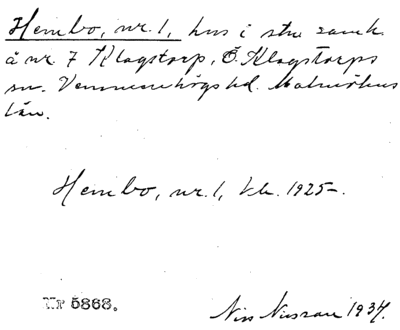 Hembo, nr. 1, hus i stru samh.
å nr. 7 Klagstorp, Ö. Klagstorps
sn. Vemmenhögs hd. Malmöhus
län.
Hembo, nr. 1, 1925-.
Nr 5868.
Nils Nilsson 1937.